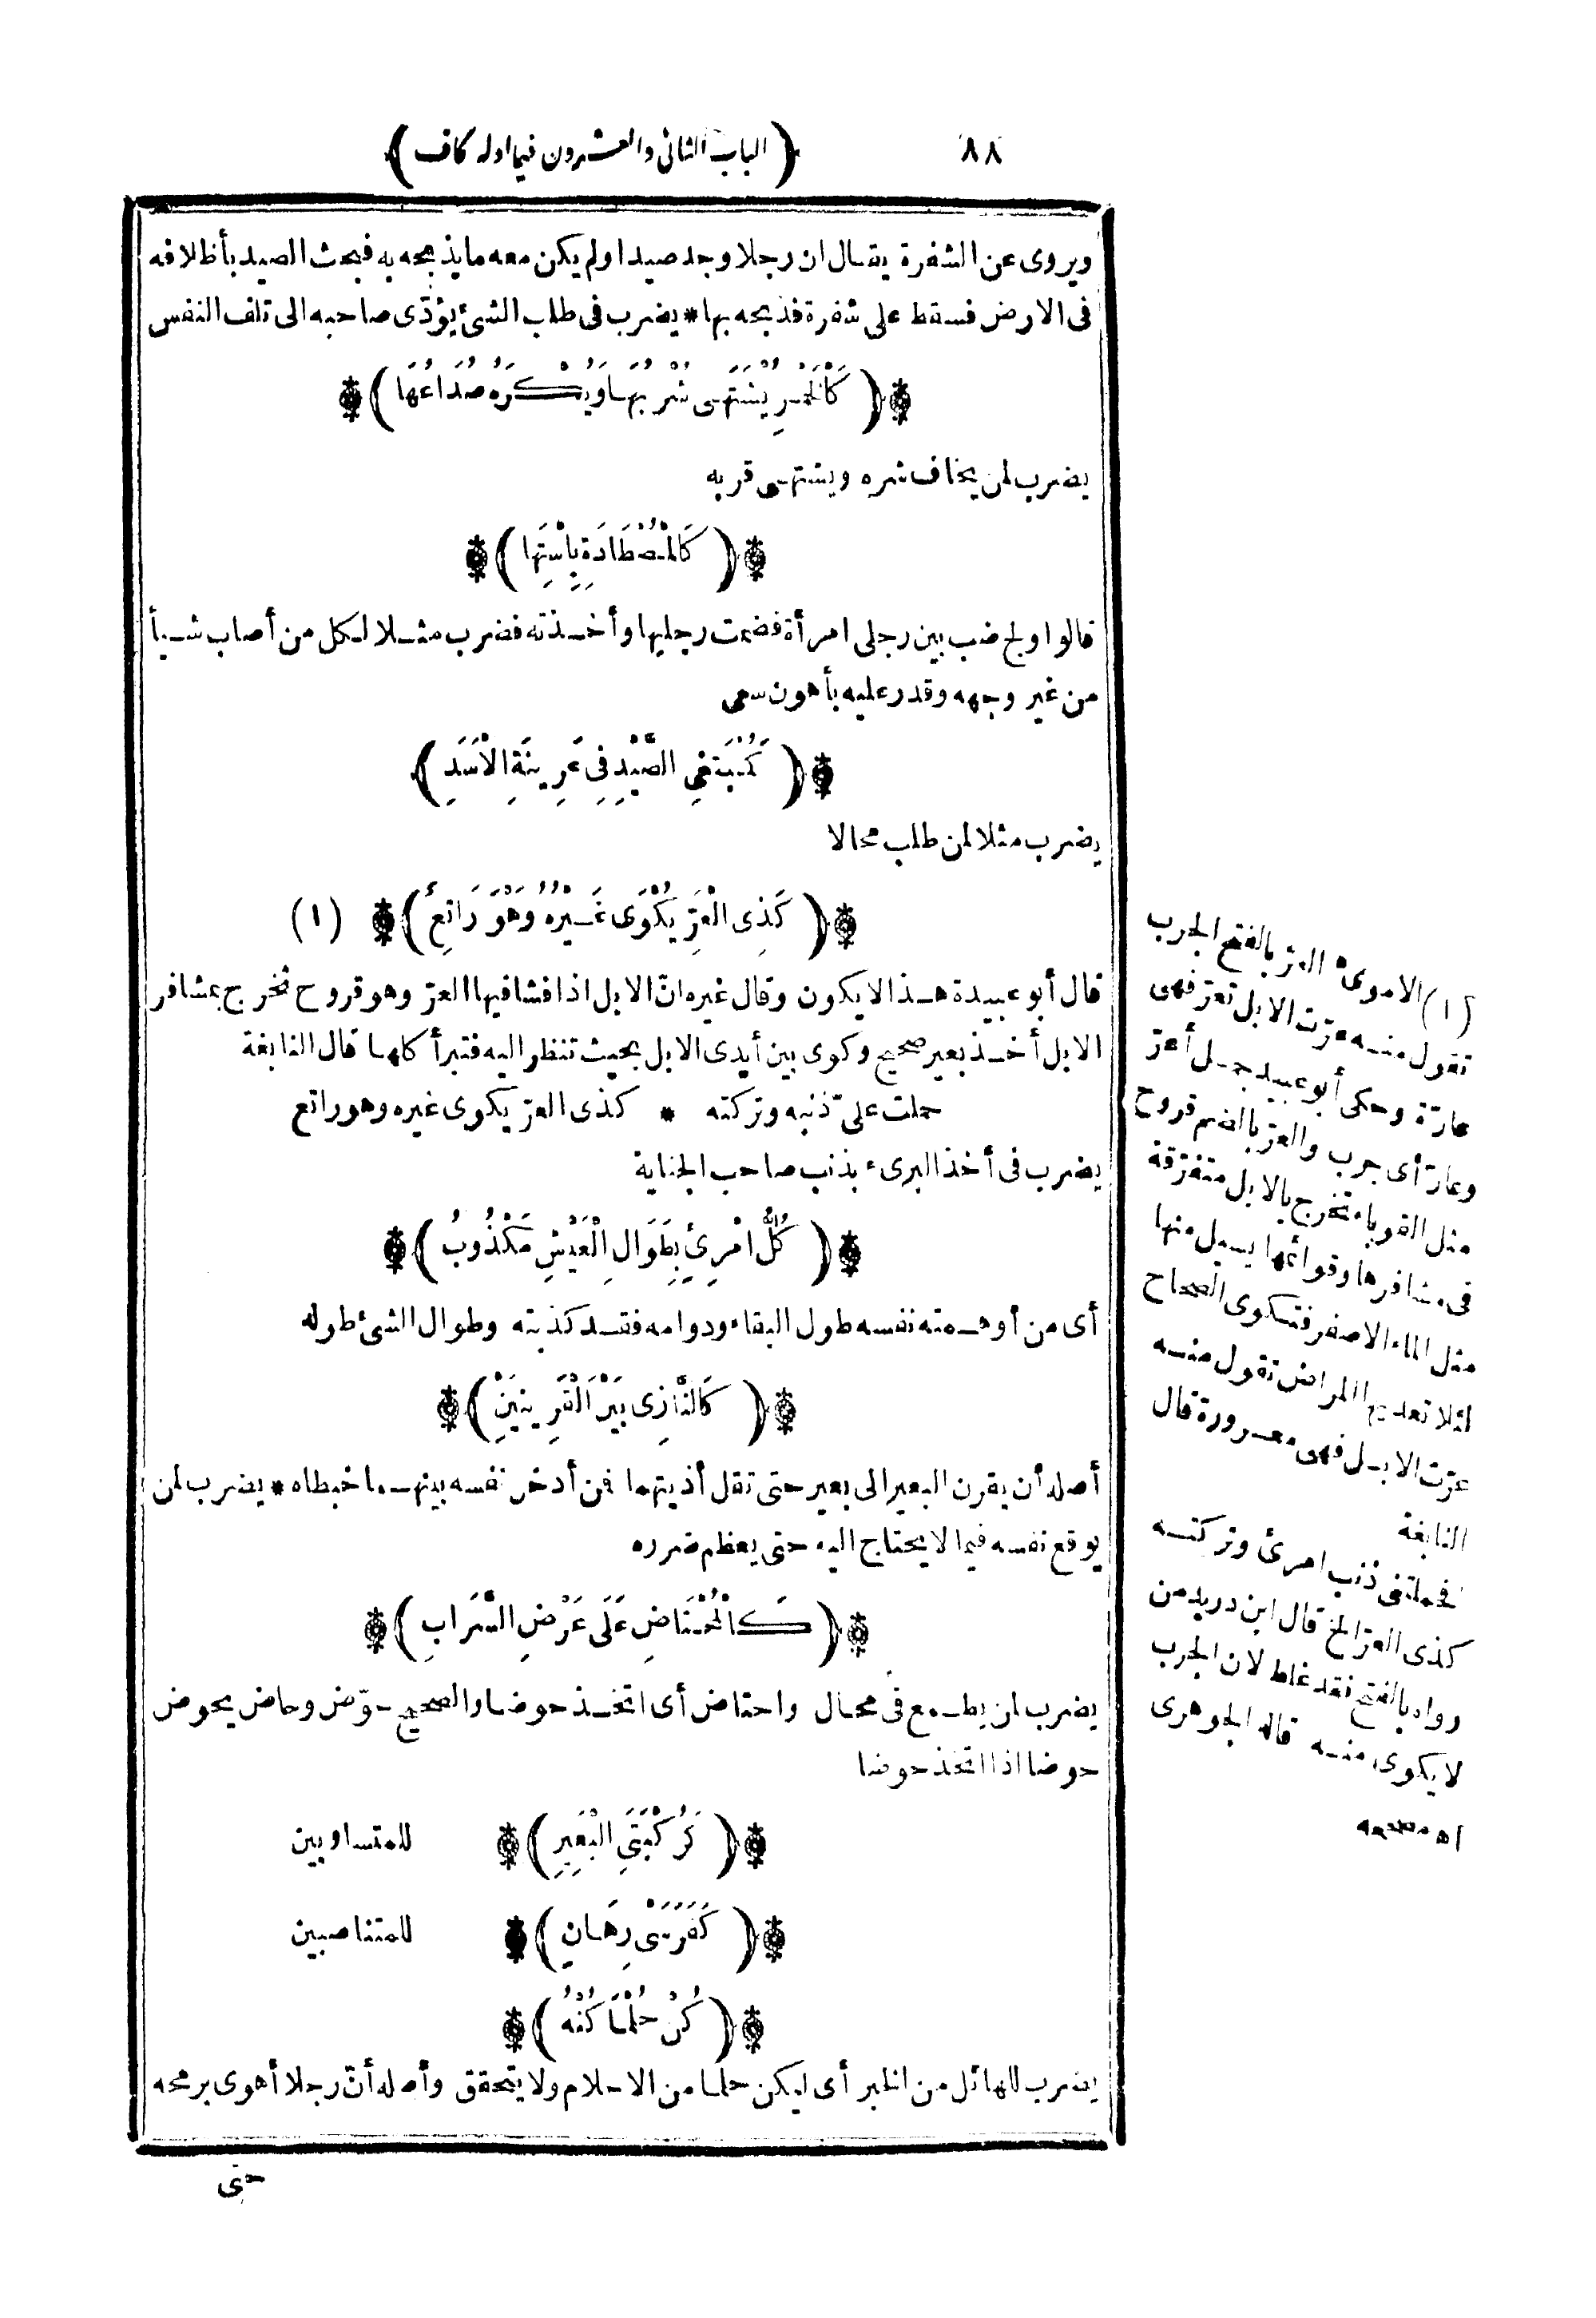 ٨٨
(الباب الثانى والعشرون فيما اوله كاف)
ويروى عن الشفرة يقال ان رجلا وجد صيدا ولم يكن معه ما يذبحه به فبحث الصيد بأظلافه
فى الارض فسقط على شفرة فذبحه بها * يضرب فى طلب الشئ يؤدّى صاحبه الى تلف النفس
(كَالْخَمْرِ يُشْتَهَى شُرْبُهَا وَيُكْرَهُ صُدَاعُهَا)
يضرب لمن يخاف شره ويشتهى قربه
(كَالْمُصْطَادَةِ بِاسْتِهَا)
قالوا ولج ضب بين رجلى امرأة فضمت رجليها وأخذته فضرب مثلا لكل من أصاب شيأ
من غير وجهه وقدر عليه بأهون سعى
(كَمُبْتَغِى الصَّيْدِ فِى عَرِينَةِ الْاَسَدِ)
يضرب مثلا لمن طلب محالا
(كَذِى الْعَرِّ يُكْوَى غَيْرُهُ وَهْوَ رَاتِعُ) (١)
قال أبو عبيدة هذا لا يكون وقال غيره انّ الابل اذا فشا فيها العرّ وهو قروح تخرج بمشافر
الابل أخذ بعير صحيح وكوى بين أيدى الابل بحيث تنظر اليه فتبرأ كلها قال النابغة
حملت علىّ ذنبه وتركته * كذى العرّ يكوى غيره وهو راتع
يضرب فى أخذ البرىء بذنب صاحب الجناية
(كُلُّ امْرِئٍ بِطَوَالِ الْعَيْشِ مَكْذُوبُ)
أى من أوهمته نفسه طول البقاء ودوامه فقد كذبته وطوال الشئ طوله
(كَالنَّازِى بَيْنَ الْقَرِينَيْنِ)
أصله أن يقرن البعير الى بعير حتى تقل أذيتهما فمن أدخل نفسه بينهما خبطاه * يضرب لمن
يوقع نفسه فيما لا يحتاج اليه حتى يعظم ضرره
(كَالْمُحْتَاضِ عَلَى عَرْضِ السَّرَابِ)
يضرب لمن يطمع فى محال واحتاض أى اتخذ حوضا والصحيح حوّض وحاض يحوض
حوضا اذا اتخذ حوضا
(كَرُكْبَتَىِ الْبَعِيرِ) للمتساويين
(كَفَرَسَىْ رِهَانٍ) للمتناصبين
(كُنْ حُلْمًا كُنْهُ)
يضرب للهائل من الخبر أى ليكن حلما من الاحلام ولا يتحقق وأصله أنّ رجلا أهوى برمحه
حتى
(١) الاموى العرّ بالفتح الجرب
تقول منه عرّت الابل تعرّ فهى
عارّة وحكى أبو عبيد جمل أعرّ
وعارّ أى جرب والعرّ بالضم قروح
مثل القوباء تخرج بالابل متفرّقة
فى مشافرها وقوائمها يسيل منها
مثل الماء الاصفر فتكوى الصحاح
لئلا تعديها المراض تقول منه
عرّت الابل فهى معرورة قال
النابغة
فحملتنى ذنب امرئ وتركته
كذى العرّ الخ قال ابن دريد من
رواه بالفتح فقد غلط لان الجرب
لا يكوى منه قاله الجوهرى
اه مصححه